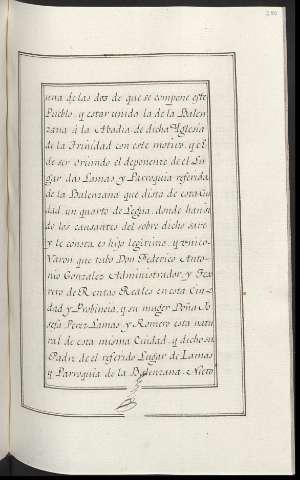 una de las dos de que se compone este
Pueblo, y estar unido la de la Balen-
zana â la Abadia de dicha Yglesia
de la Trinidad con este motivo, y el
de ser oriundo el deponente de el Lu-
gar das Lamas y Parroquia referida
de la Balenzana que dista de esta Ciu-
dad, un quarto de Legua, donde han si-
do los causantes del sobre dicho save
y le consta, es hijo legitimo, y unico
Varon que tubo Don Federico Anto-
nio Gonzalez Administrador, y Teso-
rero de Rentas Reales en esta Ciu-
dad y Probincia, y su muger Doña Jo-
sefa Perez Lamas y Romero esta natu-
ral de esta misma Cuidad, y dicho su
Padre de el referido Lugar de Lamas
y Parroquia de la Balenzana. Nieto